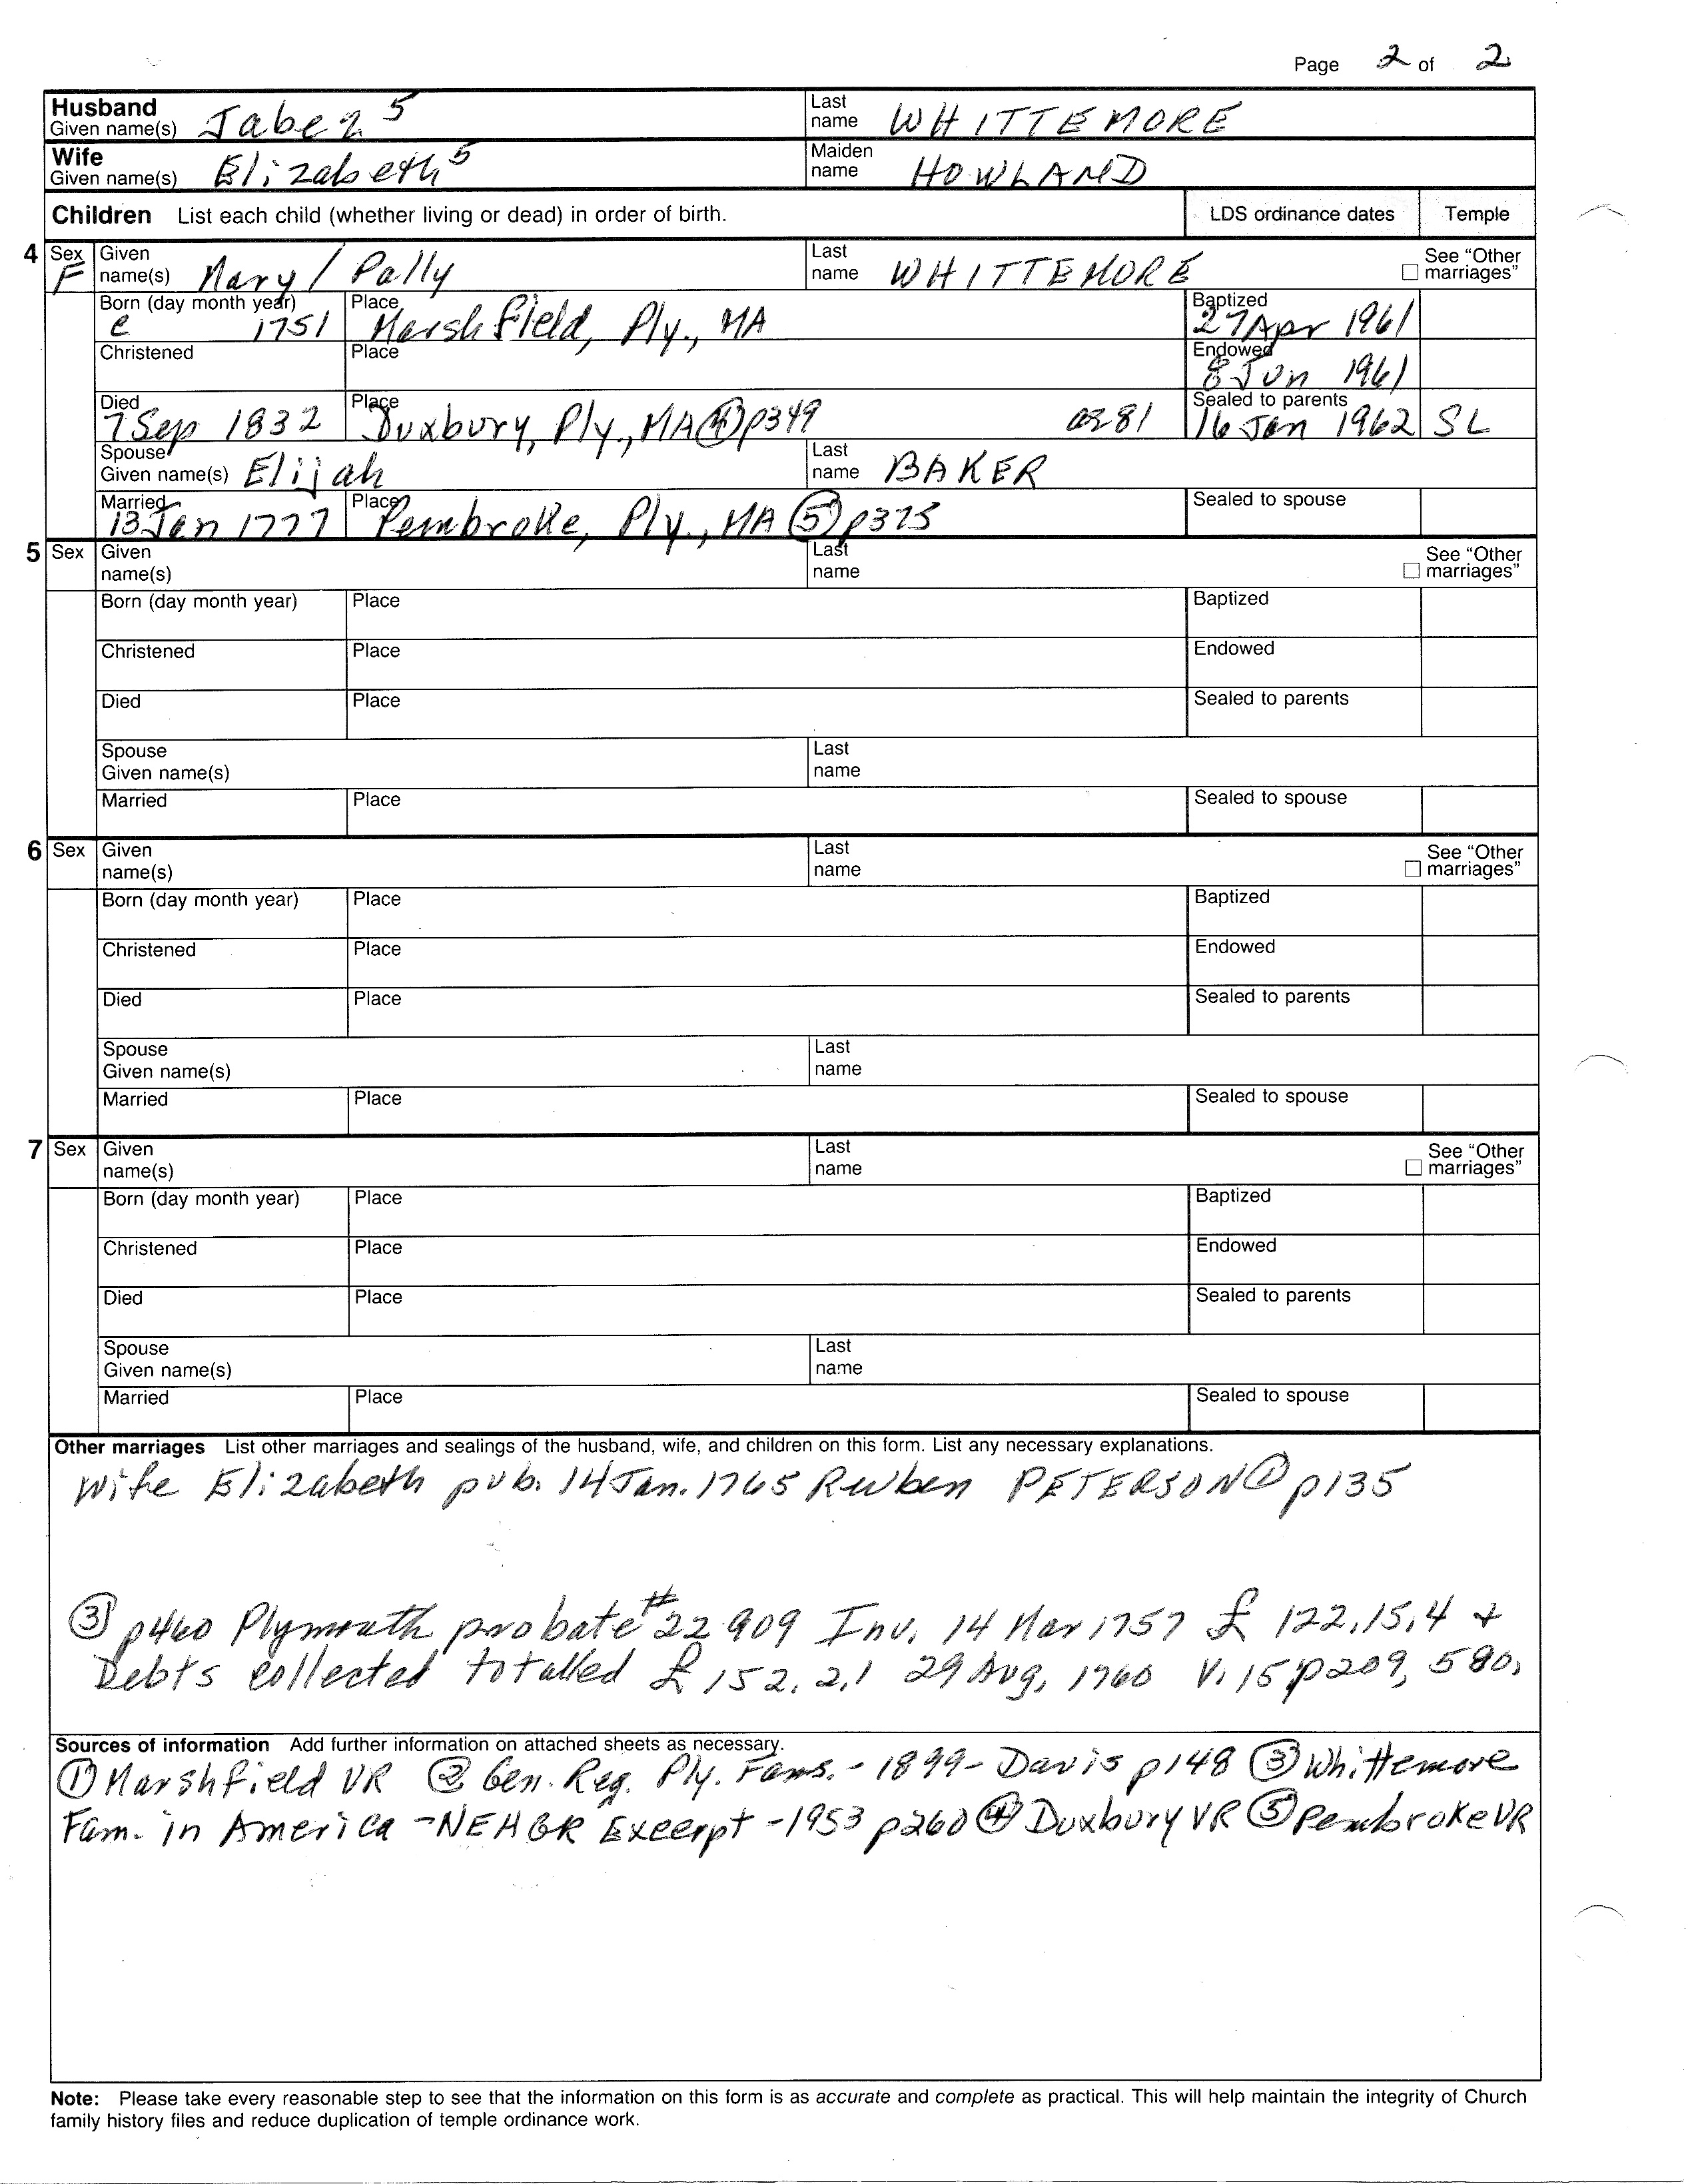 Page 2 of 2
Husband
Given name(s) Jabez 5
Last
name WHITTEMORE
Wife
Given name(s) Elizabeth 5
Maiden
name HOWLAND
Children List each child (whether living or dead) in order of birth.
LDS ordinance dates
Temple
4 Sex F
Given
name(s) Mary / Polly
Last
name WHITTEMORE
See “Other
marriages”
Born (day month year)
c 1751
Place
Marshfield, Ply., MA
Baptized
27 Apr 1961
Christened
Place
Endowed
8 Jun 1961
Died
7 Sep 1832
Place
Duxbury, Ply., MA ④ p349
Sealed to parents
16 Jan 1962 SL
Spouse
Given name(s) Elijah
Last
name BAKER
Married
13 Jan 1777
Place
Pembroke, Ply., MA ⑤ p375
Sealed to spouse
5 Sex
Given
name(s)
Last
name
See “Other
marriages”
Born (day month year)
Place
Baptized
Christened
Place
Endowed
Died
Place
Sealed to parents
Spouse
Given name(s)
Last
name
Married
Place
Sealed to spouse
6 Sex
Given
name(s)
Last
name
See “Other
marriages”
Born (day month year)
Place
Baptized
Christened
Place
Endowed
Died
Place
Sealed to parents
Spouse
Given name(s)
Last
name
Married
Place
Sealed to spouse
7 Sex
Given
name(s)
Last
name
See “Other
marriages”
Born (day month year)
Place
Baptized
Christened
Place
Endowed
Died
Place
Sealed to parents
Spouse
Given name(s)
Last
name
Married
Place
Sealed to spouse
Other marriages List other marriages and sealings of the husband, wife, and children on this form. List any necessary explanations.
Wife Elizabeth pub. 14 Jan. 1765 Reuben PETERSON ① p135
③ p460 Plymouth probate #22909 Inv. 14 Mar 1757 £ 122.15.4 +
Debts collected totalled £ 152.2.1 29 Aug. 1760 V.15 p209, 580.
Sources of information Add further information on attached sheets as necessary.
① Marshfield VR ② Gen. Reg. Ply. Fams. - 1899 - Davis p148 ③ Whittemore
Fam. in America - NEHGR Excerpt - 1953 p260 ④ Duxbury VR ⑤ Pembroke VR
Note: Please take every reasonable step to see that the information on this form is as accurate and complete as practical. This will help maintain the integrity of Church
family history files and reduce duplication of temple ordinance work.